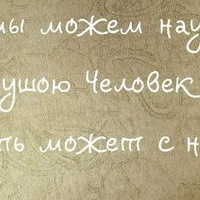 мы можем нау
ушою Человек
ть может с н